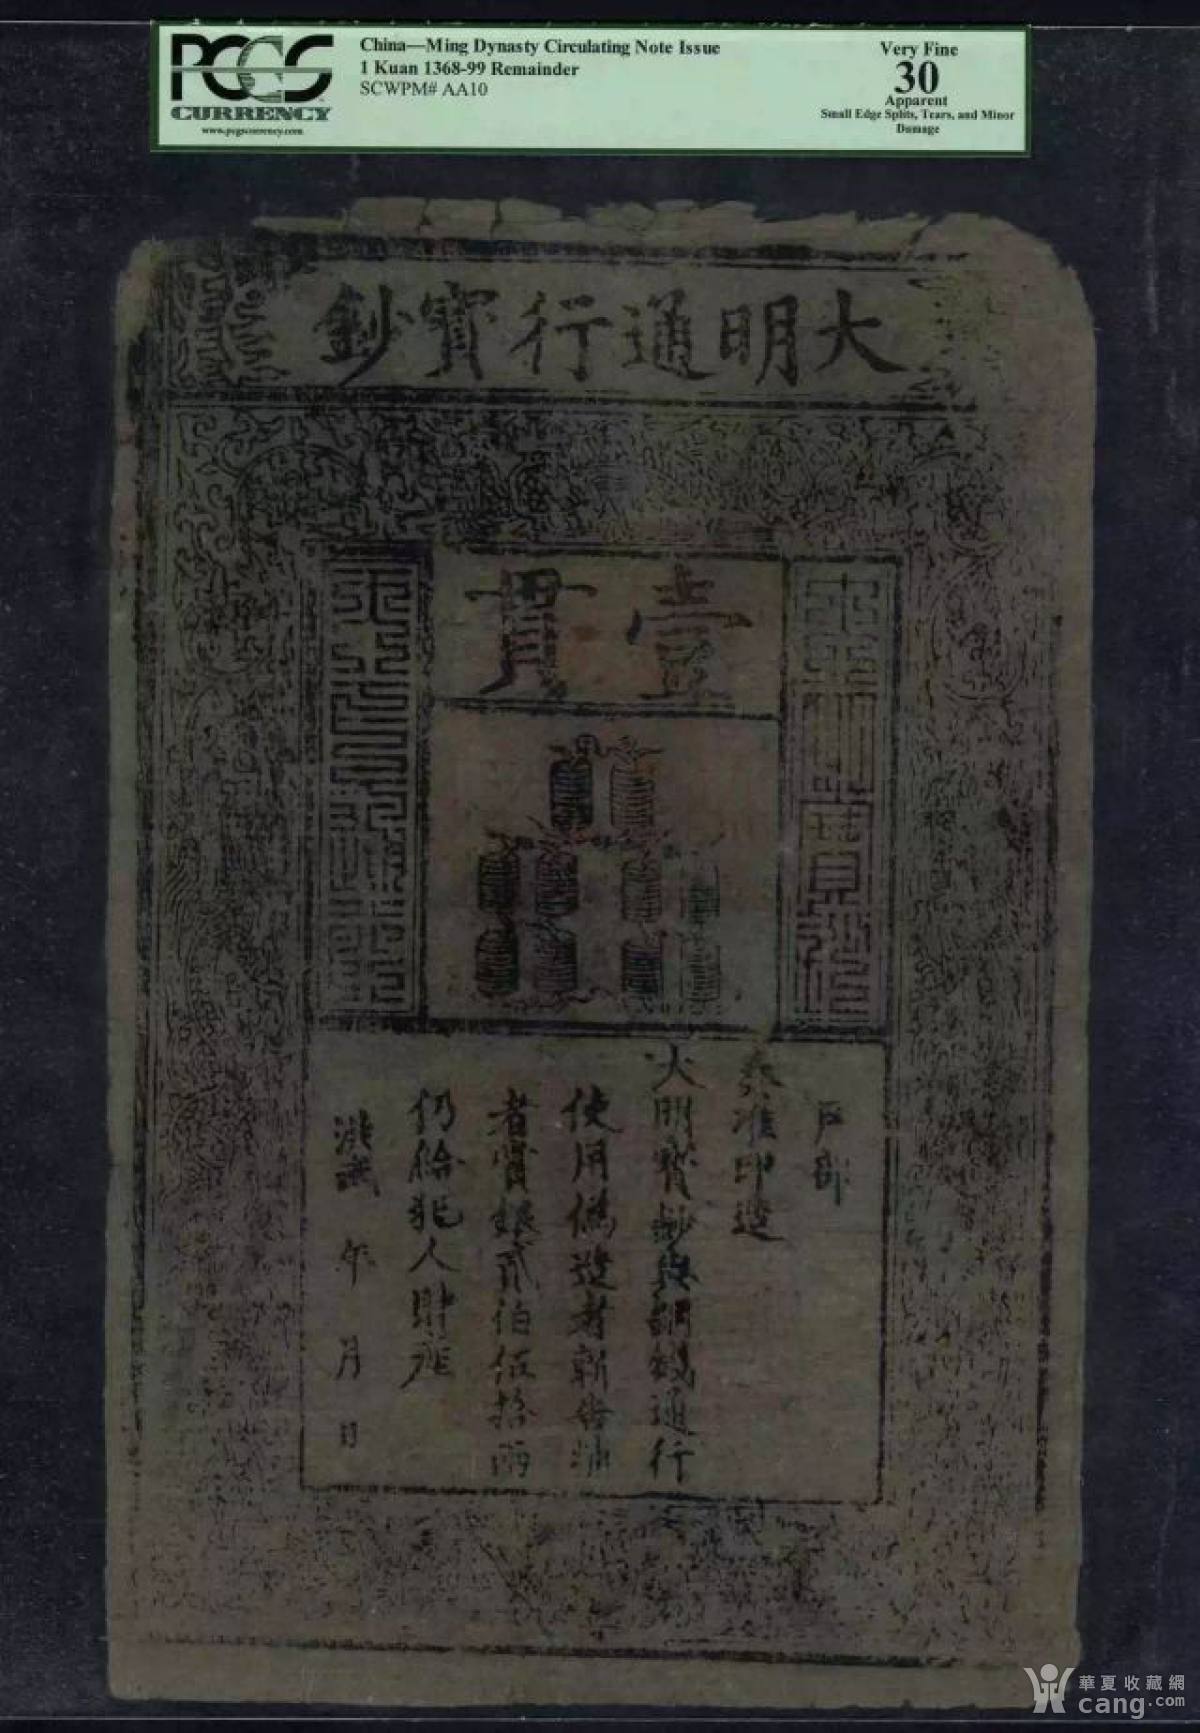 PCGS
CURRENCY
www.pcgscurrency.com
China—Ming Dynasty Circulating Note Issue
1 Kuan 1368-99 Remainder
SCWPM# AA10
Very Fine
30
Apparent
Small Edge Splits, Tears, and Minor
Damage
大明通行寶鈔
壹貫
戶部
奏准印造
大明寶鈔與銅錢通行
使用偽造者斬告捕
者賞銀貳伯伍拾兩
仍給犯人財產
洪武 年 月 日
華夏收藏網
cang.com